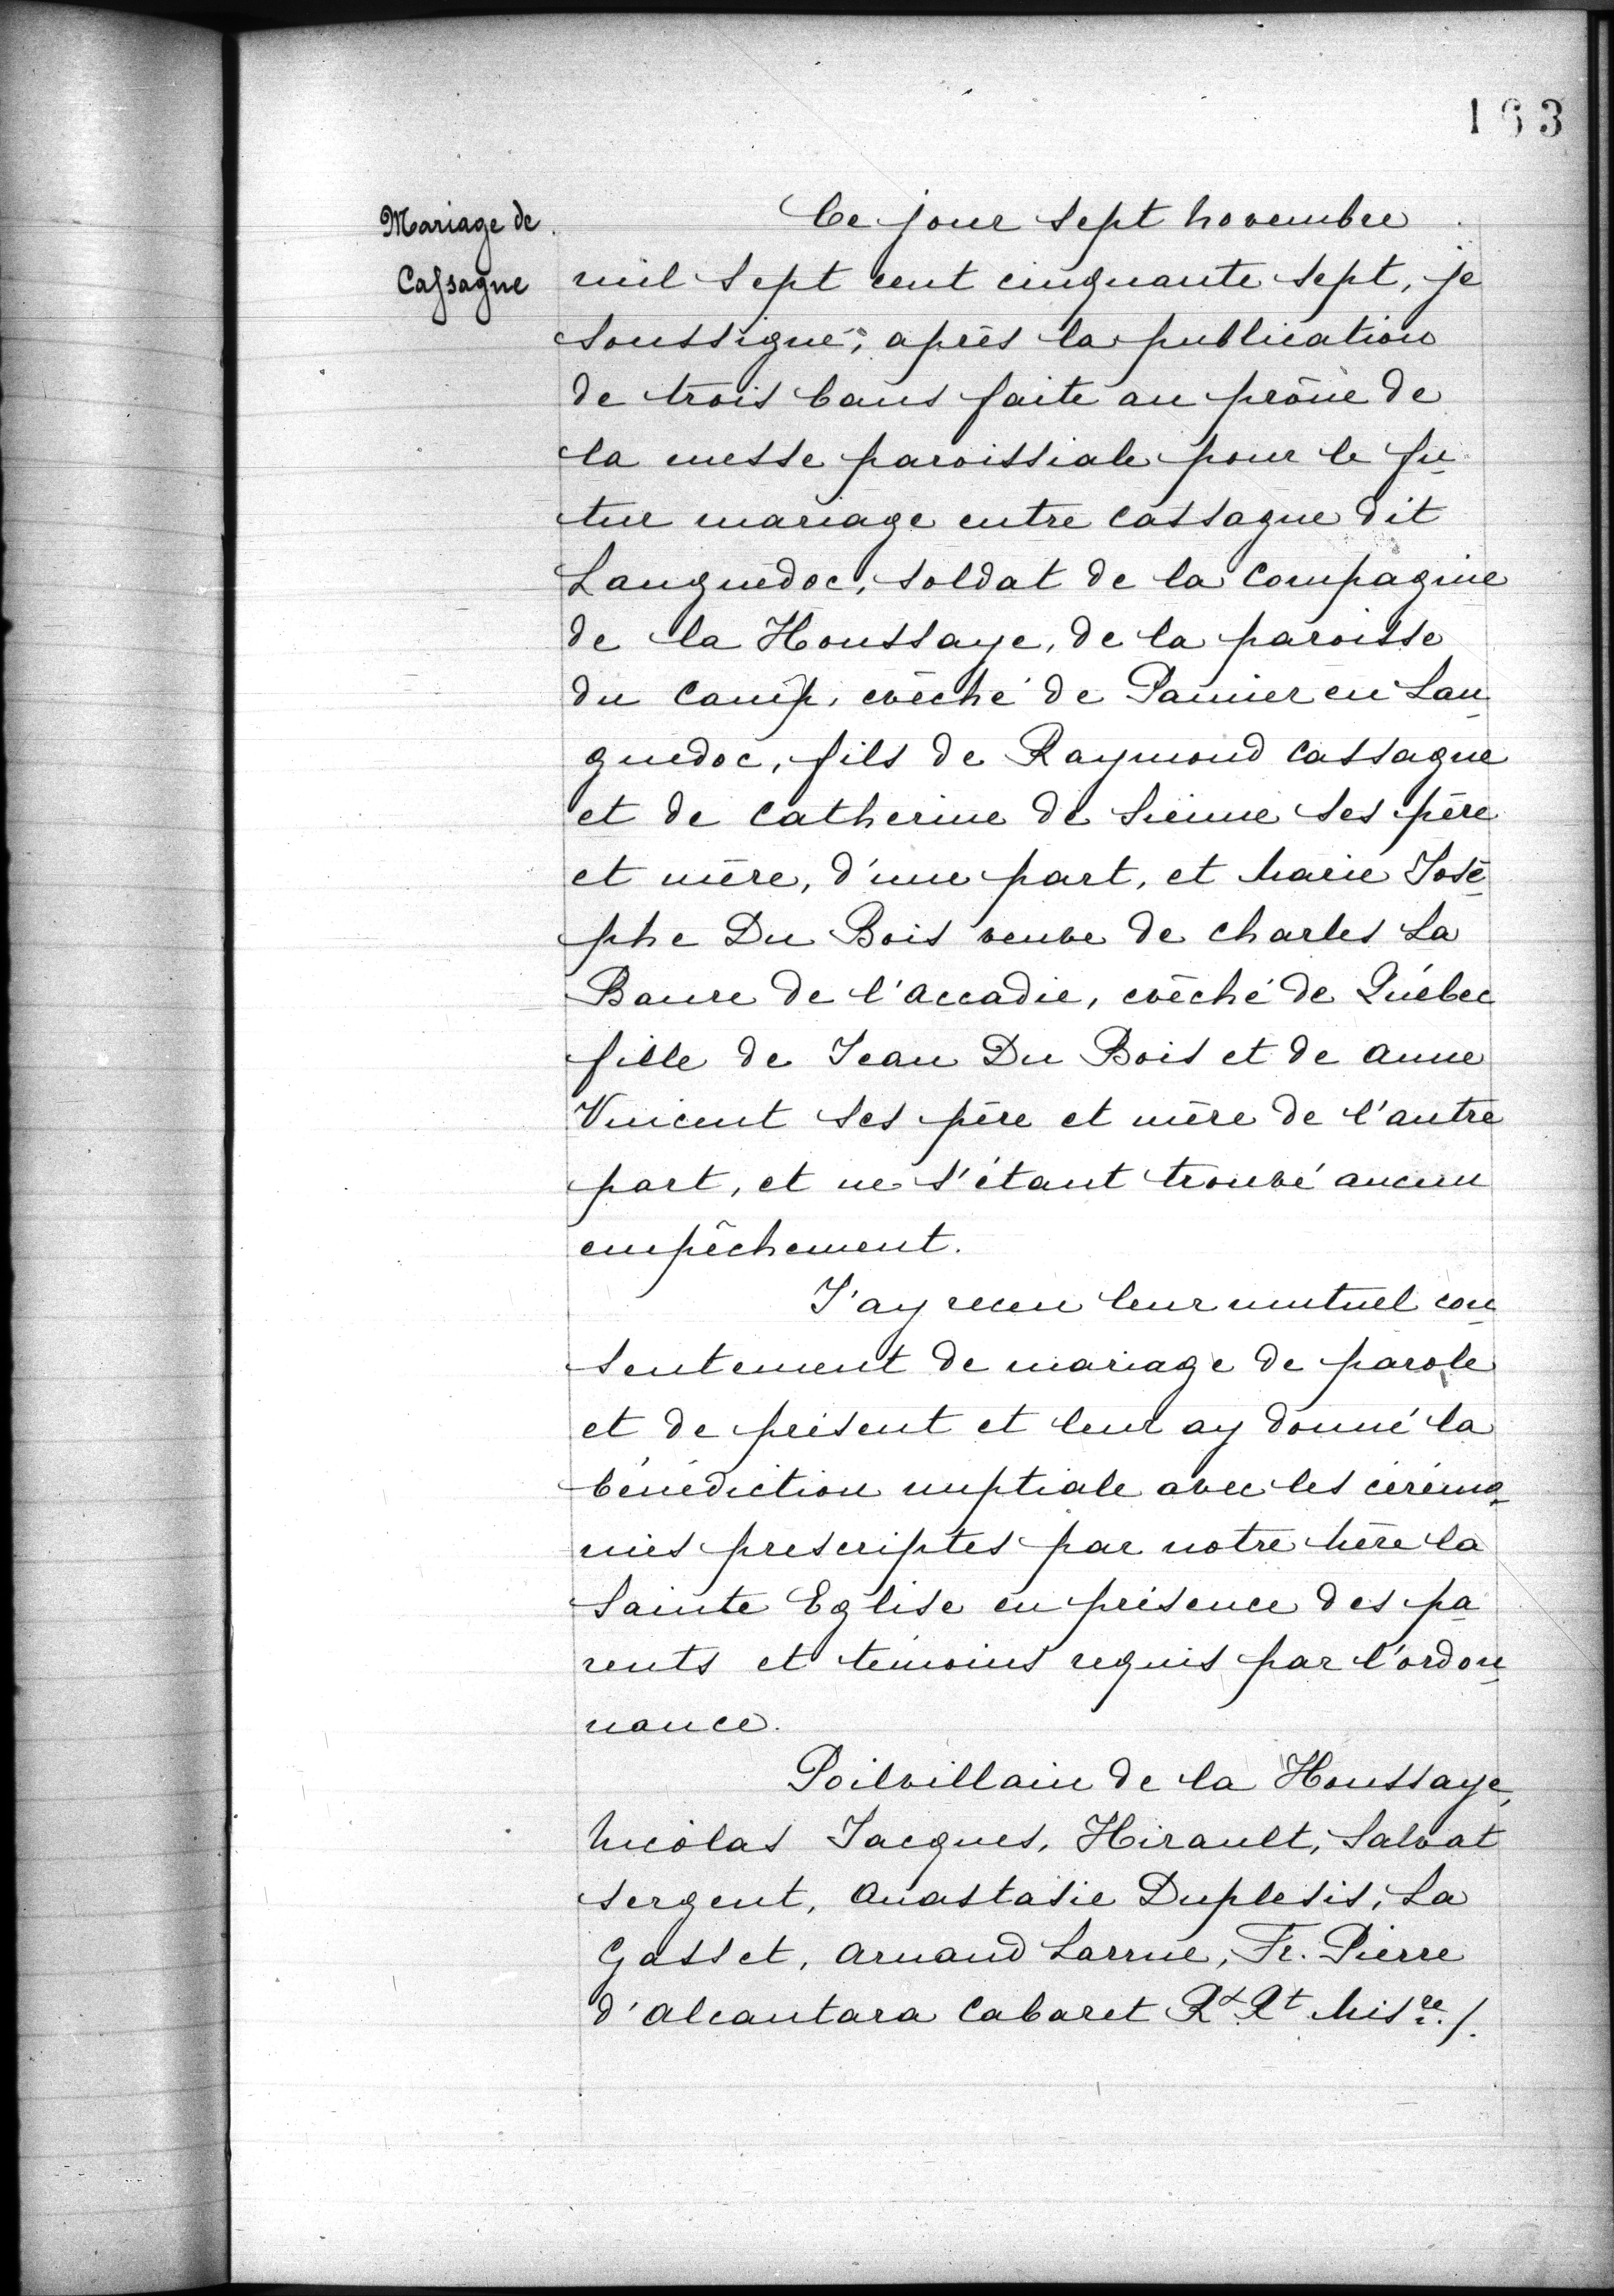 163
Mariage de
Cassagne
Ce jour sept novembre
mil sept cent cinquante sept, je
soussigné, après la publication
de trois bans faite au prône de
la messe paroissiale pour le fu-
tur mariage entre Cassagne dit
Languedoc, soldat de la Compagnie
de la Houssaye, de la paroisse
du Camp, evêché de Pamier en Lan-
guedoc, fils de Raymond Cassagne
et de Catherine de Sienne ses père
et mère, d'une part, et Marie José-
phe Du Bois veuve de Charles La
Baure de l'Accadie, evêché de Québec
fille de Jean Du Bois et de Anne
Vincent ses père et mère de l'autre
part, et ne s'étant trouvé aucun
empêchement.
J'ay receu leur mutuel con-
sentement de mariage de parole
et de présent et leur ay donné la
bénédiction nuptiale avec les cérémo-
nies prescriptes par notre Mère la
Sainte Eglise en présence des pa-
rents et témoins requis par l'ordon-
nance.
Poilvillain de la Houssaye,
Nicolas Jacques, Hirault, Salvat
sergent, Anastasie Duplesis, La
Gasset, Arnaud Larrue, Fr. Pierre
d'Alcantara Cabaret Rt Rt Misre./.